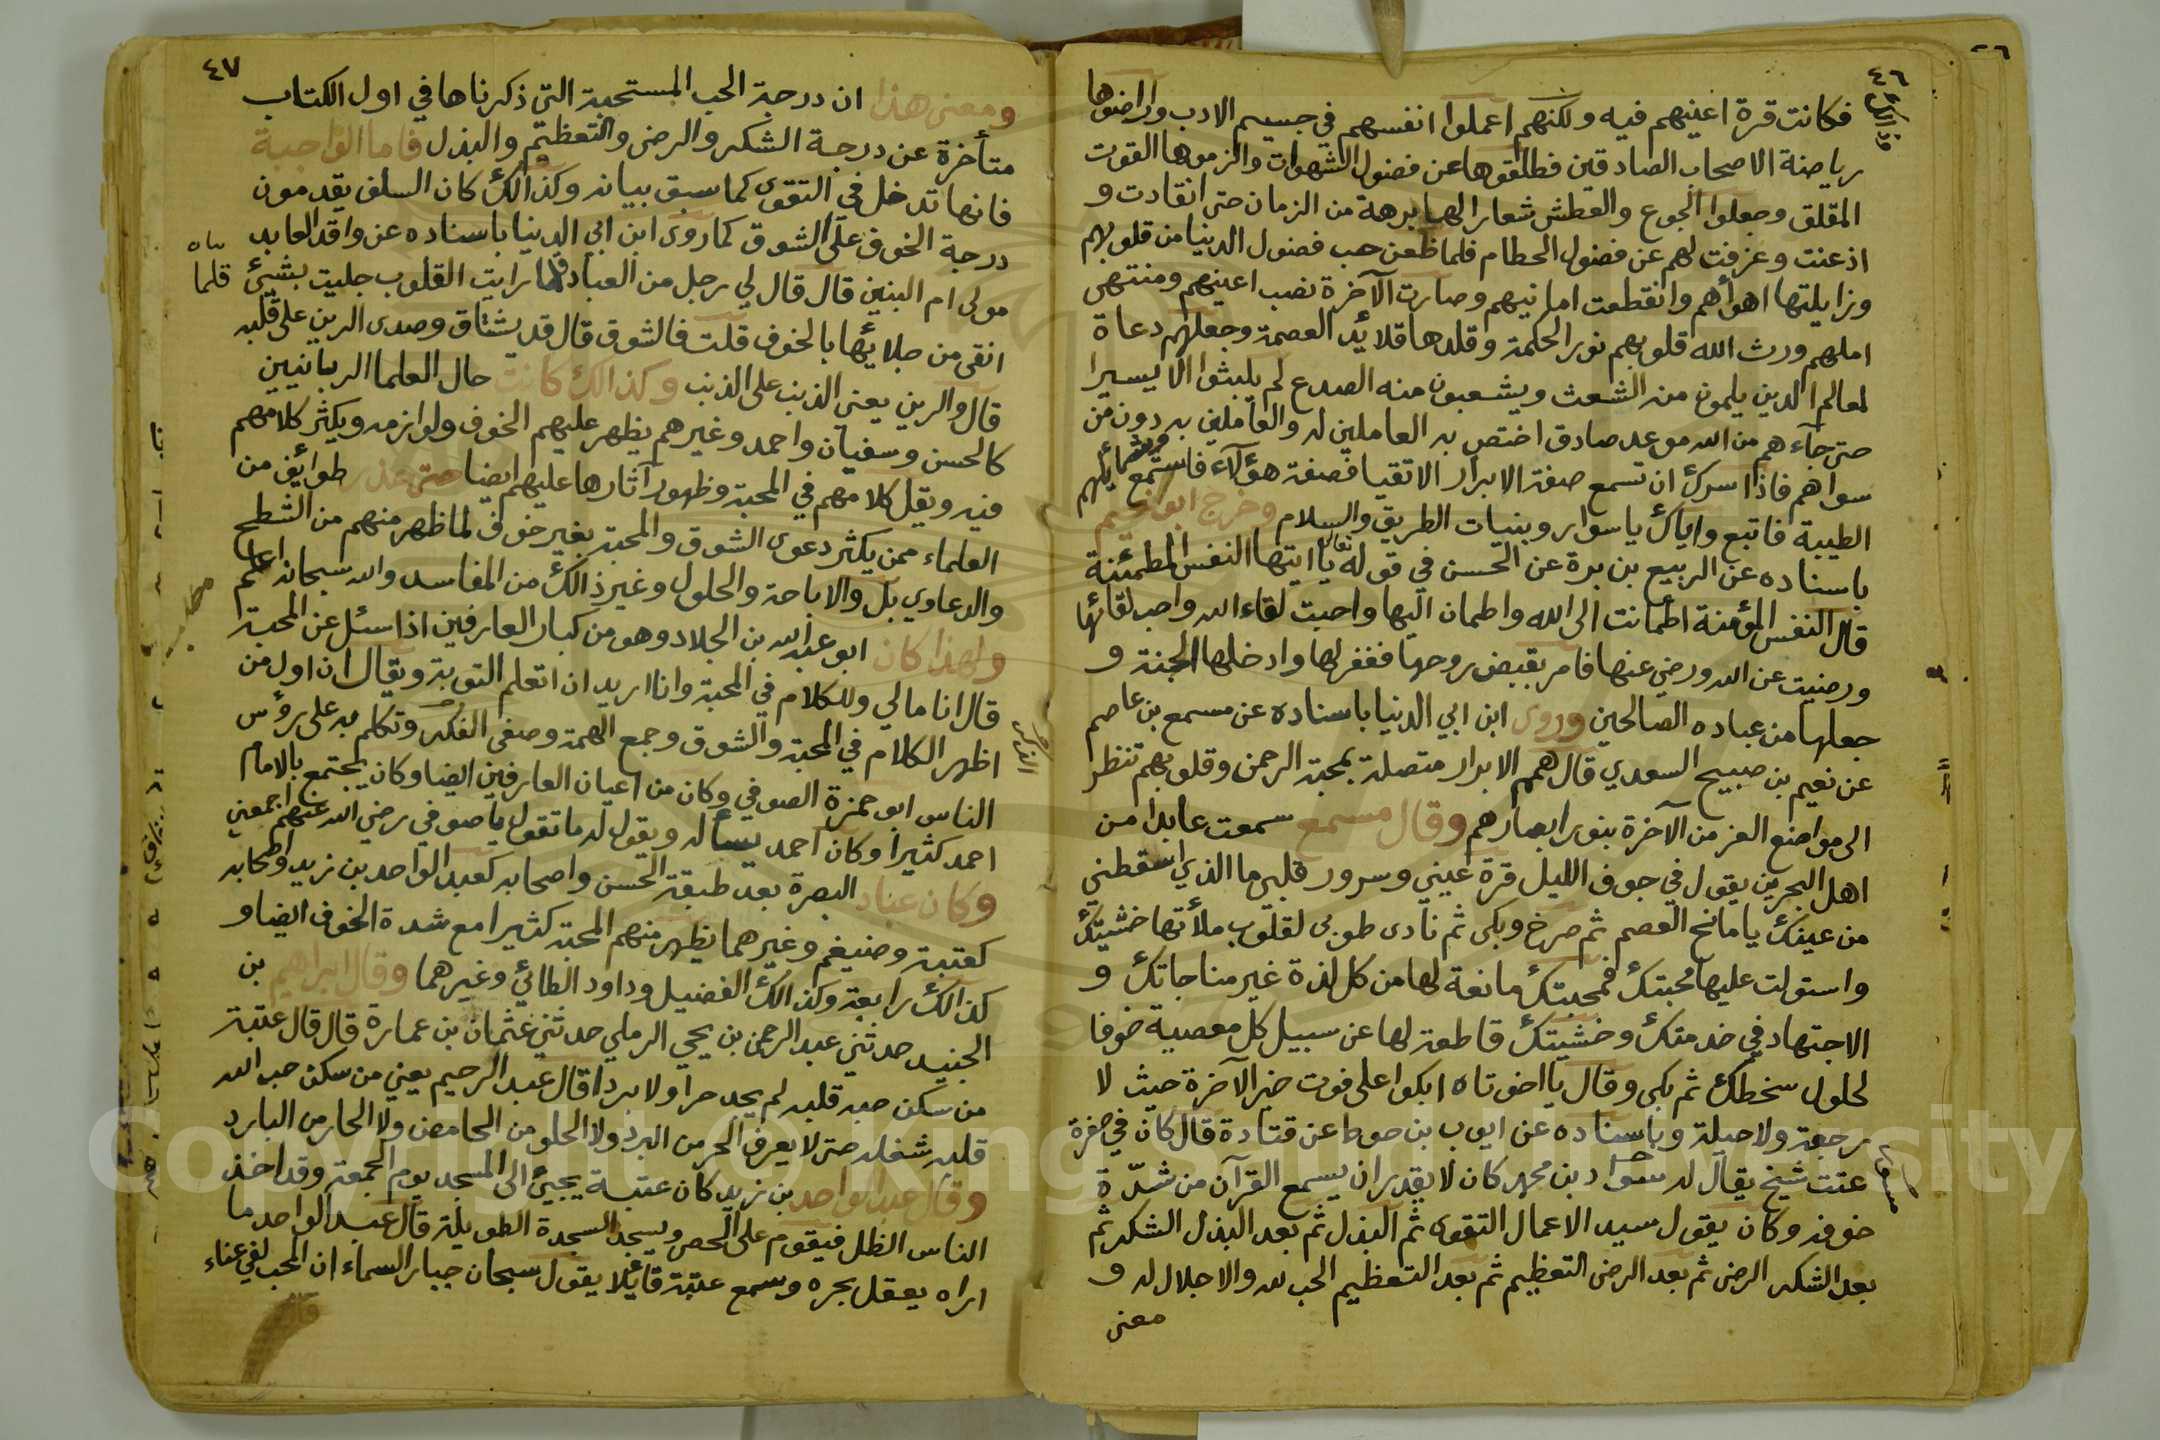 ٤٦
فكانت قرة اعينهم فيه ولكنهم اعملوا انفسهم في جسيم الادب وراضوها
رياضة الاصحاب الصادقين فطلقوها عن فضول الشهوات والزموها القوت
المقلق وجعلوا الجوع والعطش شعارا لها برهة من الزمان حتى انقادت و
اذعنت وعزفت لهم عن فضول الحطام فلما ظعن حب فضول الدنيا من قلوبهم
وزايلتها اهواهم وانقطعت امانيهم وصارت الآخرة نصب اعينهم ومنتهى
املهم ورث الله قلوبهم نور الحكمة وقلدها قلائد العصمة وجعلهم دعاة
لمعالم الدين يلمون منه الشعث ويشعبون منه الصدع لم يلبثوا الا يسيرا
حتى جاءهم من الله موعد صادق اختص به العاملين له والعاملين به دون من
سواهم فاذا سرك ان تسمع صفة الابرار الاتقيا فصفة هؤلاء فاستمع وشمائلهم
الطيبة فاتبع واياك يا سوار وبنيات الطريق والسلام وخرج ابو نعيم
باسناده عن الربيع بن برة عن الحسن في قوله تعالى يا ايتها النفس المطمئنة
قال النفس المؤمنة اطمانت الى الله واطمان اليها واحبت لقاء الله واحب لقائها
ورضيت عن الله ورضي عنها فامر بقبض روحها فغفر لها وادخلها الجنة و
جعلها من عباده الصالحين وروى ابن ابي الدنيا باسناده عن مسمع بن عاصم
عن نعيم بن صبيح السعدي قال همم الابرار متصلة بمحبة الرحمن وقلوبهم تنظر
الى مواضع العز من الآخرة بنور ابصارهم وقال مسمع سمعت عابدا من
اهل البحرين يقول في جوف الليل قرة عيني وسرور قلبي ما الذي اسقطني
من عينك يا مانح العصم ثم صرخ وبكى ثم نادى طوبى لقلوب ملأتها خشيتك
واستولت عليها محبتك فمحبتك مانعة لها من كل لذة غير مناجاتك و
الاجتهاد في خدمتك وخشيتك قاطعة لها عن سبيل كل معصية خوفا
لحلول سخطك ثم بكى وقال يا اخوتاه ابكوا على فوت خير الآخرة حيث لا
رجعة ولا حيلة وباسناده عن ايوب بن خوط عن قتادة قال كان في
شيخ يقال له سواد بن محمد كان لا يقدر ان يسمع القرآن من شدّة
خوفه وكان يقول سيد الاعمال التقوى ثم البذل ثم بعد البذل الشكر ثم
بعد الشكر الرضى ثم بعد الرضى التعظيم ثم بعد التعظيم الحب لله والاجلال له و
معنى
٤٧
ومعنى هذا ان درجة الحب المستحبة التي ذكرناها في اول الكتاب
متأخرة عن درجة الشكر والرضى والتعظيم والبذل فاما الواجبة
فانها تدخل في التقوى كما سبق بيانه وكذالك كان السلف يقدمون
درجة الخوف على الشوق كما روى ابن ابي الدنيا باسناده عن واقد العابد
مولى ام البنين قال قال لي رجل من العباد ما رايت القلوب جليت بشيئ قلما
انقى من جلائها بالخوف قلت فالشوق قال قد يشتاق وصدى الرين على قلبه
قال والرين يعني الذنب على الذنب وكذالك كانت حال العلما الربانيين
كالحسن وسفيان واحمد وغيرهم يظهر عليهم الخوف ولوازمه ويكثر كلامهم
فيه ويقل كلامهم في المحبة وظهور آثارها عليهم ايضا حتى حذر طوائف من
العلماء ممن يكثر دعوى الشوق والمحبة بغير خوف لما ظهر منهم من الشطح
والدعاوي بل والاباحة والحلول وغير ذالك من المفاسد والله سبحانه اعلم
ولهذا كان ابو عبد الله بن الجلاد وهو من كبار العارفين اذا سئل عن المحبة
قال انا مالي وللكلام في المحبة وانا اريد ان اتعلم التوبة ويقال ان اول من
اظهر الكلام في المحبة والشوق وجمع الهمة وصفى الفكر وتكلم به على رؤس
الناس ابو حمزة الصوفي وكان من اعيان العارفين ايضا وكان يجتمع بالامام
احمد كثيرا وكان احمد يسأله ويقول له ما تقول يا صوفي رضي الله عنهم اجمعين
وكان عباد البصرة بعد طبقة الحسن واصحابه كعبد الواحد بن زيد واصحابه
كعتبة وضيغم وغيرهما يظهر منهم المحبة كثيرا مع شدة الخوف ايضا و
كذالك رابعة وكذالك الفضيل وداود الطائي وغيرهما وقال ابراهيم بن
الجنيد حدثني عبد الرحمن بن يحيى الرملي حدثني عثمان بن عمارة قال قال عتبة
من سكن حبه قلبه لم يجد حرا ولا بردا قال عبد الرحيم يعني من سكن حب الله
قلبه شغله حتى لا يعرف الحر من البرد ولا الحلو من الحامض ولا الحار من البارد
وقال عبد الواحد بن زيد كان عتبة يجيئ الى المسجد يوم الجمعة وقد اخذ
الناس الظل فيقوم على الحصى ويسجد السجدة الطويلة قال عبد الواحد ما
اراه يعقل بحره وسمع عتبة قائلا يقول سبحان جبار السماء ان المحب لفي عناء
فقال
Copyright © King Saud University